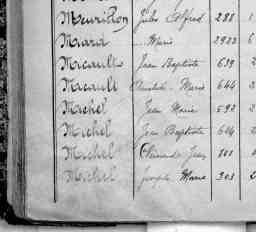 Meurillon Jules Alfred 288 1
Miard Marie 2923 6
Micault Jean Baptiste 639 2
Micault Marie 644 2
Michel Jean Marie 592 2
Michel Jean Baptiste 604 2
Michel Jean 801
Michel Joseph Marie 303 2